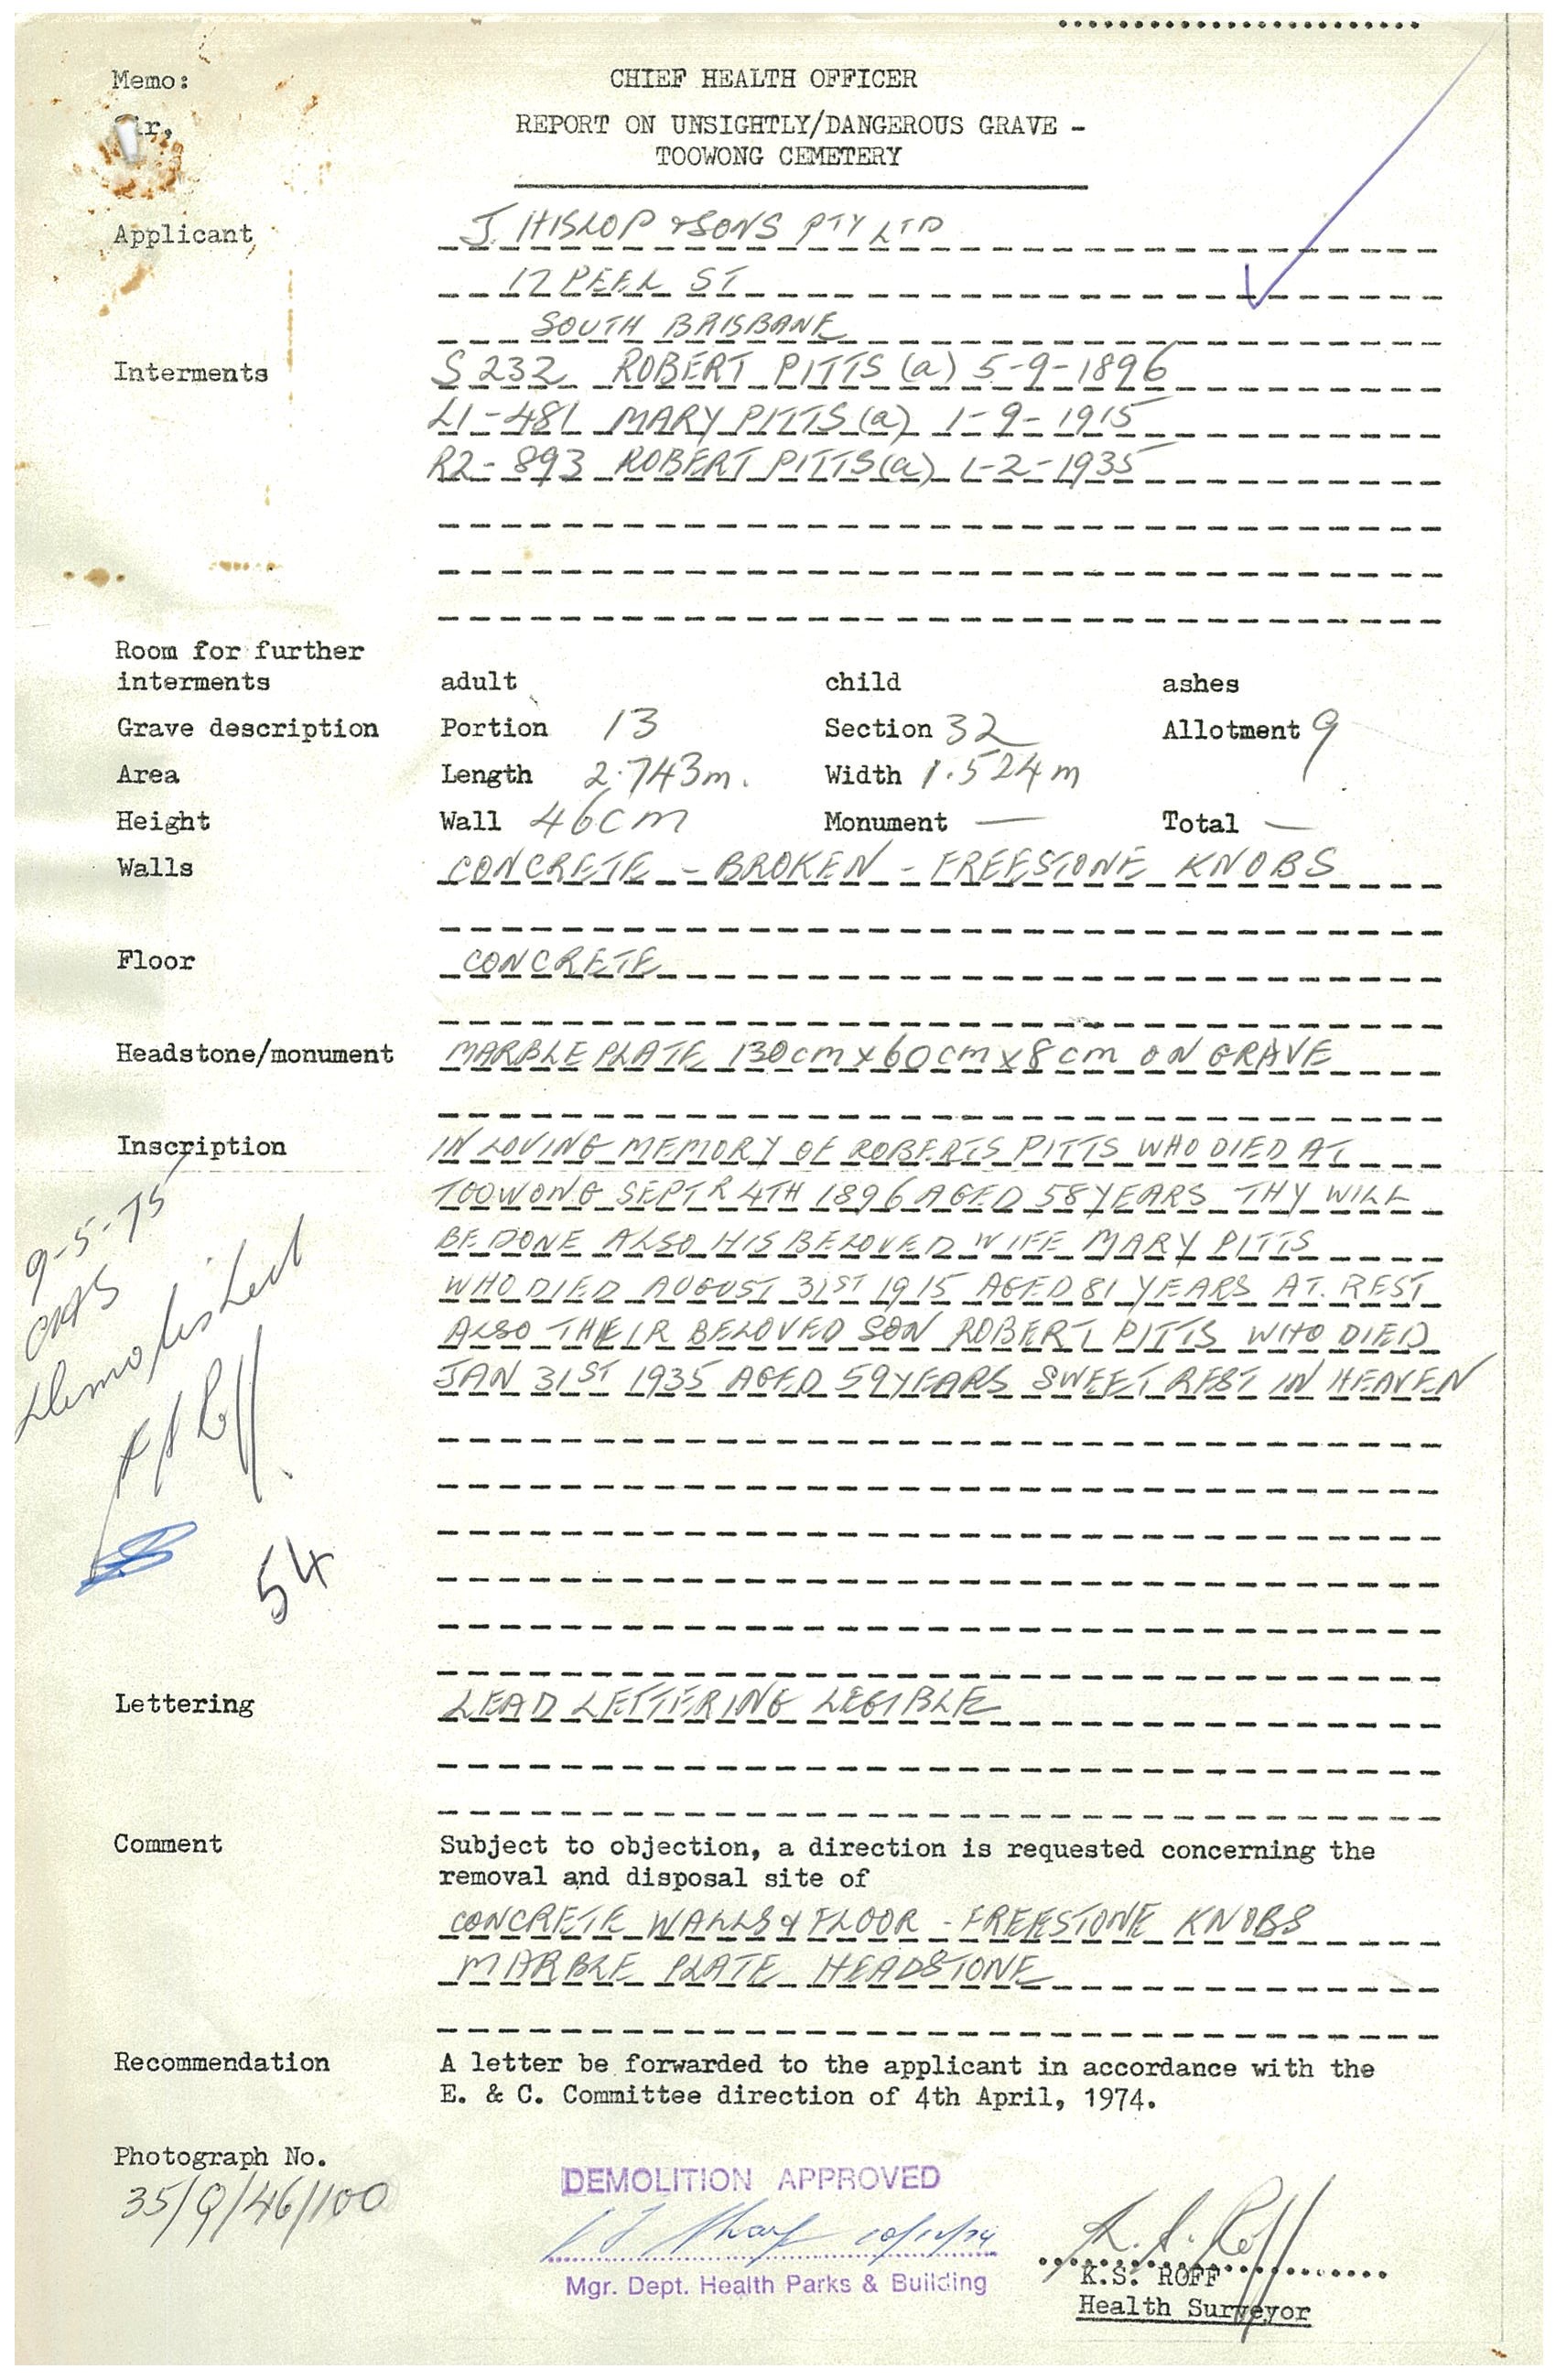 Memo:
CHIEF HEALTH OFFICER
REPORT ON UNSIGHTLY/DANGEROUS GRAVE -
TOOWONG CEMETERY
Applicant J. HISLOP & SONS PTY LTD
17 PEEL ST
SOUTH BRISBANE
Interments S 232 ROBERT PITTS (a) 5-9-1896
L1-481 MARY PITTS (a) 1-9-1915
R2-893 ROBERT PITTS (a) 1-2-1935
Room for further
interments adult child ashes
Grave description Portion 13 Section 32 Allotment 9
Area Length 2.743m. Width 1.524m
Height Wall 46cm Monument — Total —
Walls CONCRETE - BROKEN - FREESTONE KNOBS
Floor CONCRETE
Headstone/monument MARBLE PLATE 130cm x 60cm x 8cm ON GRAVE
Inscription IN LOVING MEMORY OF ROBERTS PITTS WHO DIED AT
TOOWONG SEPTR 4TH 1896 AGED 58 YEARS THY WILL
BE DONE ALSO HIS BELOVED WIFE MARY PITTS
WHO DIED AUGUST 31ST 1915 AGED 81 YEARS AT. REST
ALSO THEIR BELOVED SON ROBERT PITTS WHO DIED
JAN 31ST 1935 AGED 59 YEARS SWEET REST IN HEAVEN
9-5-75
Demolished
54
Lettering LEAD LETTERING LEGIBLE
Comment Subject to objection, a direction is requested concerning the
removal and disposal site of
CONCRETE WALLS & FLOOR - FREESTONE KNOBS
MARBLE PLATE HEADSTONE
Recommendation A letter be forwarded to the applicant in accordance with the
E. & C. Committee direction of 4th April, 1974.
Photograph No.
35/9/46/100
DEMOLITION APPROVED
10/12/74
Mgr. Dept. Health Parks & Building
K.S. ROFF
Health Surveyor